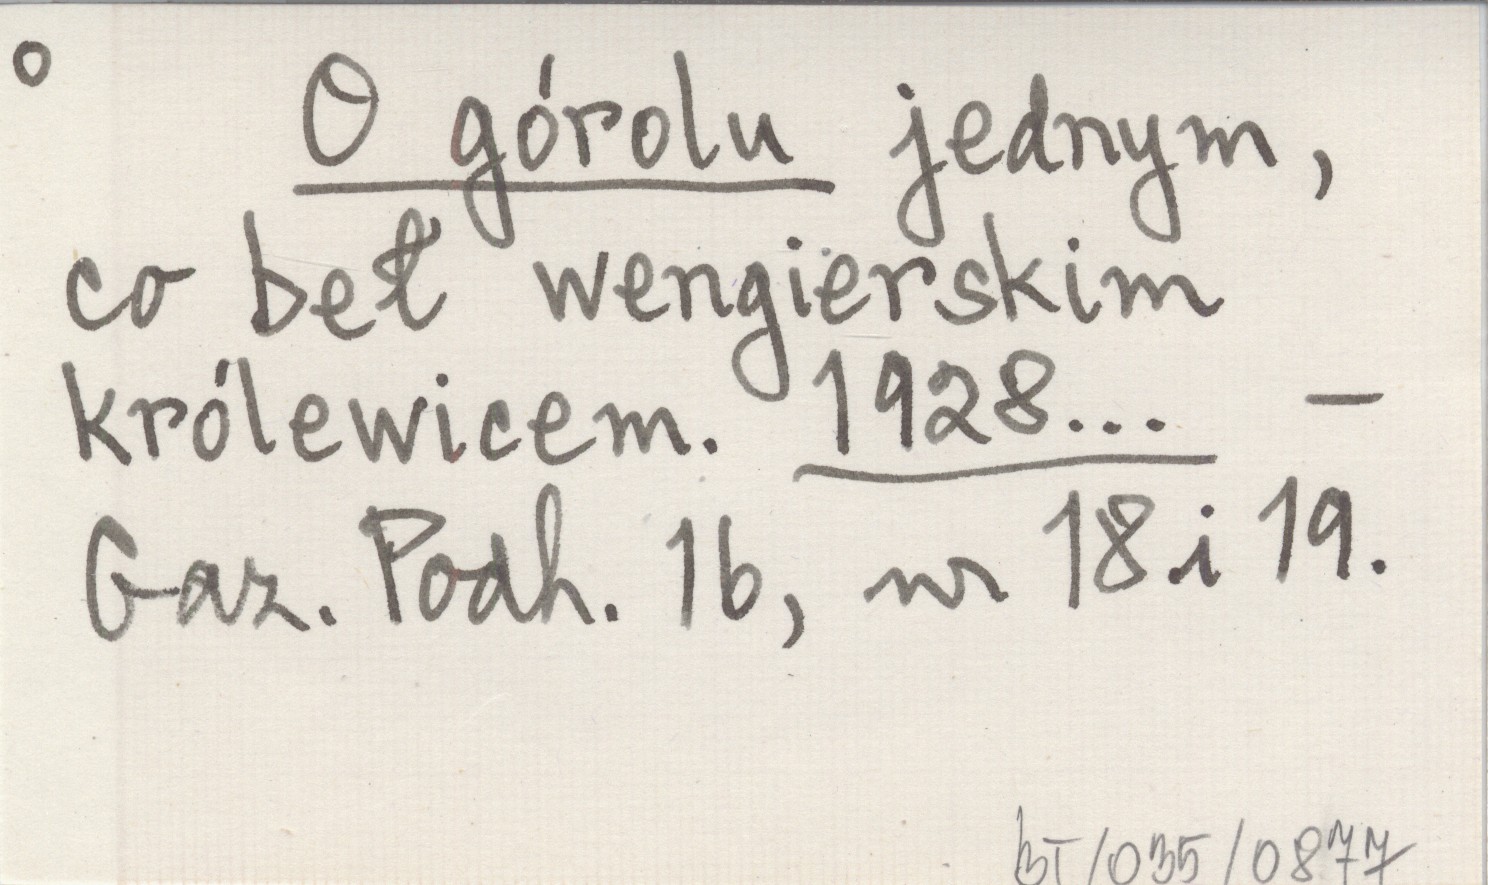 O górolu jednym,
co beł wengierskim
królewicem. 1928... –
Gaz. Podh. 16, nr 18 i 19.
BT/035/0877